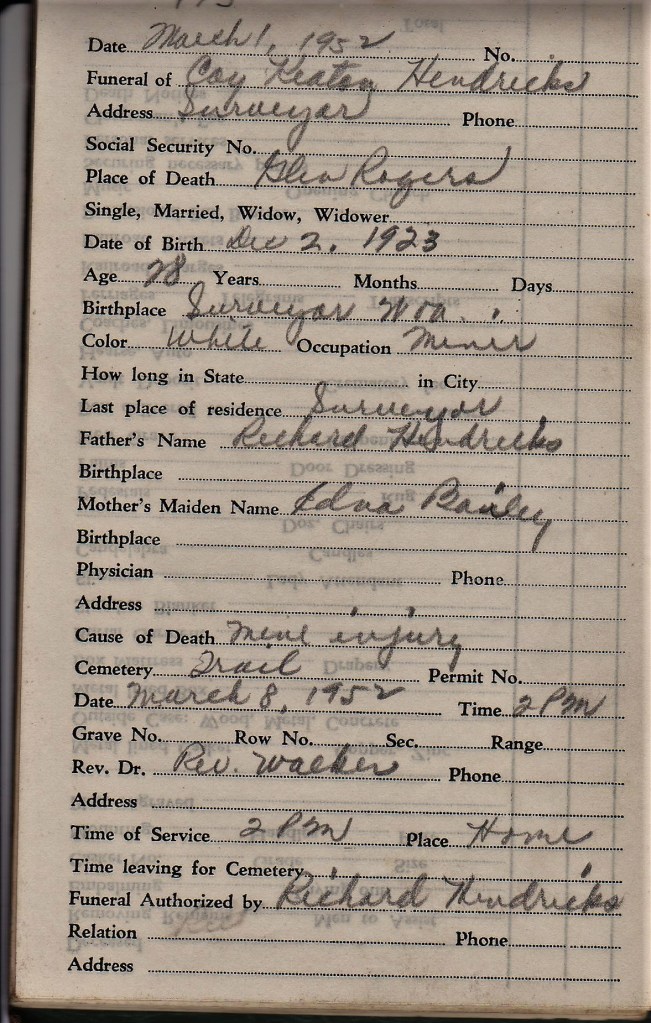 Date March 1, 1952 No.
Funeral of Coy Keaton Hendricks
Address Surveyor Phone
Social Security No.
Place of Death Glen Rogers
Single, Married, Widow, Widower
Date of Birth Dec 2, 1923
Age 28 Years Months Days
Birthplace Surveyor W Va.
Color White Occupation Miner
How long in State in City
Last place of residence Surveyor
Father's Name Richard Hendricks
Birthplace
Mother's Maiden Name Edna Bailey
Birthplace
Physician Phone
Address
Cause of Death Mine injury
Cemetery Trail Permit No.
Date March 8, 1952 Time 2 PM
Grave No. Row No. Sec. Range
Rev. Dr. Rev. Walker Phone
Address
Time of Service 2 PM Place Home
Time leaving for Cemetery
Funeral Authorized by Richard Hendricks
Relation Phone
Address